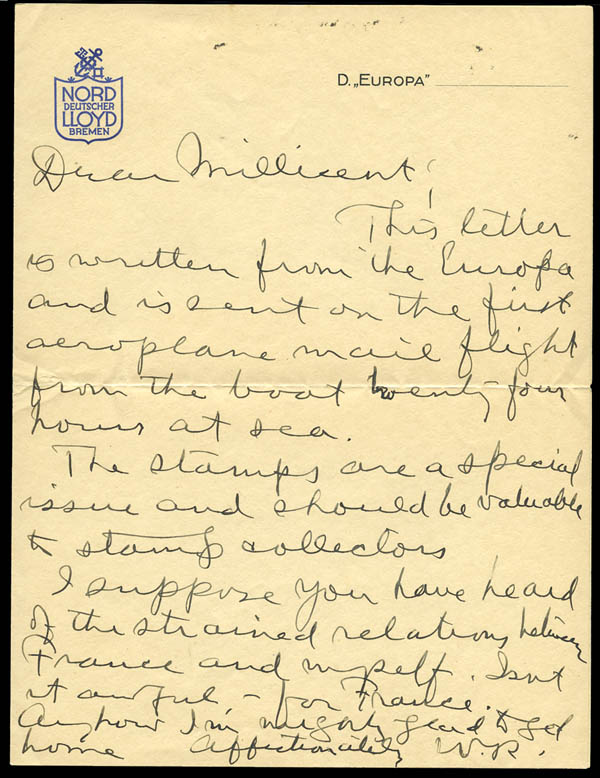 NORD
DEUTSCHER
LLOYD
BREMEN
D. „EUROPA"
Dear Millicent!
This letter
is written from the Europa
and is sent on the first
aeroplane mail flight
from the boat twenty-four
hours at sea.
The stamps are a special
issue and should be valuable
to stamp collectors
I suppose you have heard
of the strained relations between
France and myself. Isnt
it awful – for France.
Anyhow I'm mighty glad to get
home Affectionately W.R.